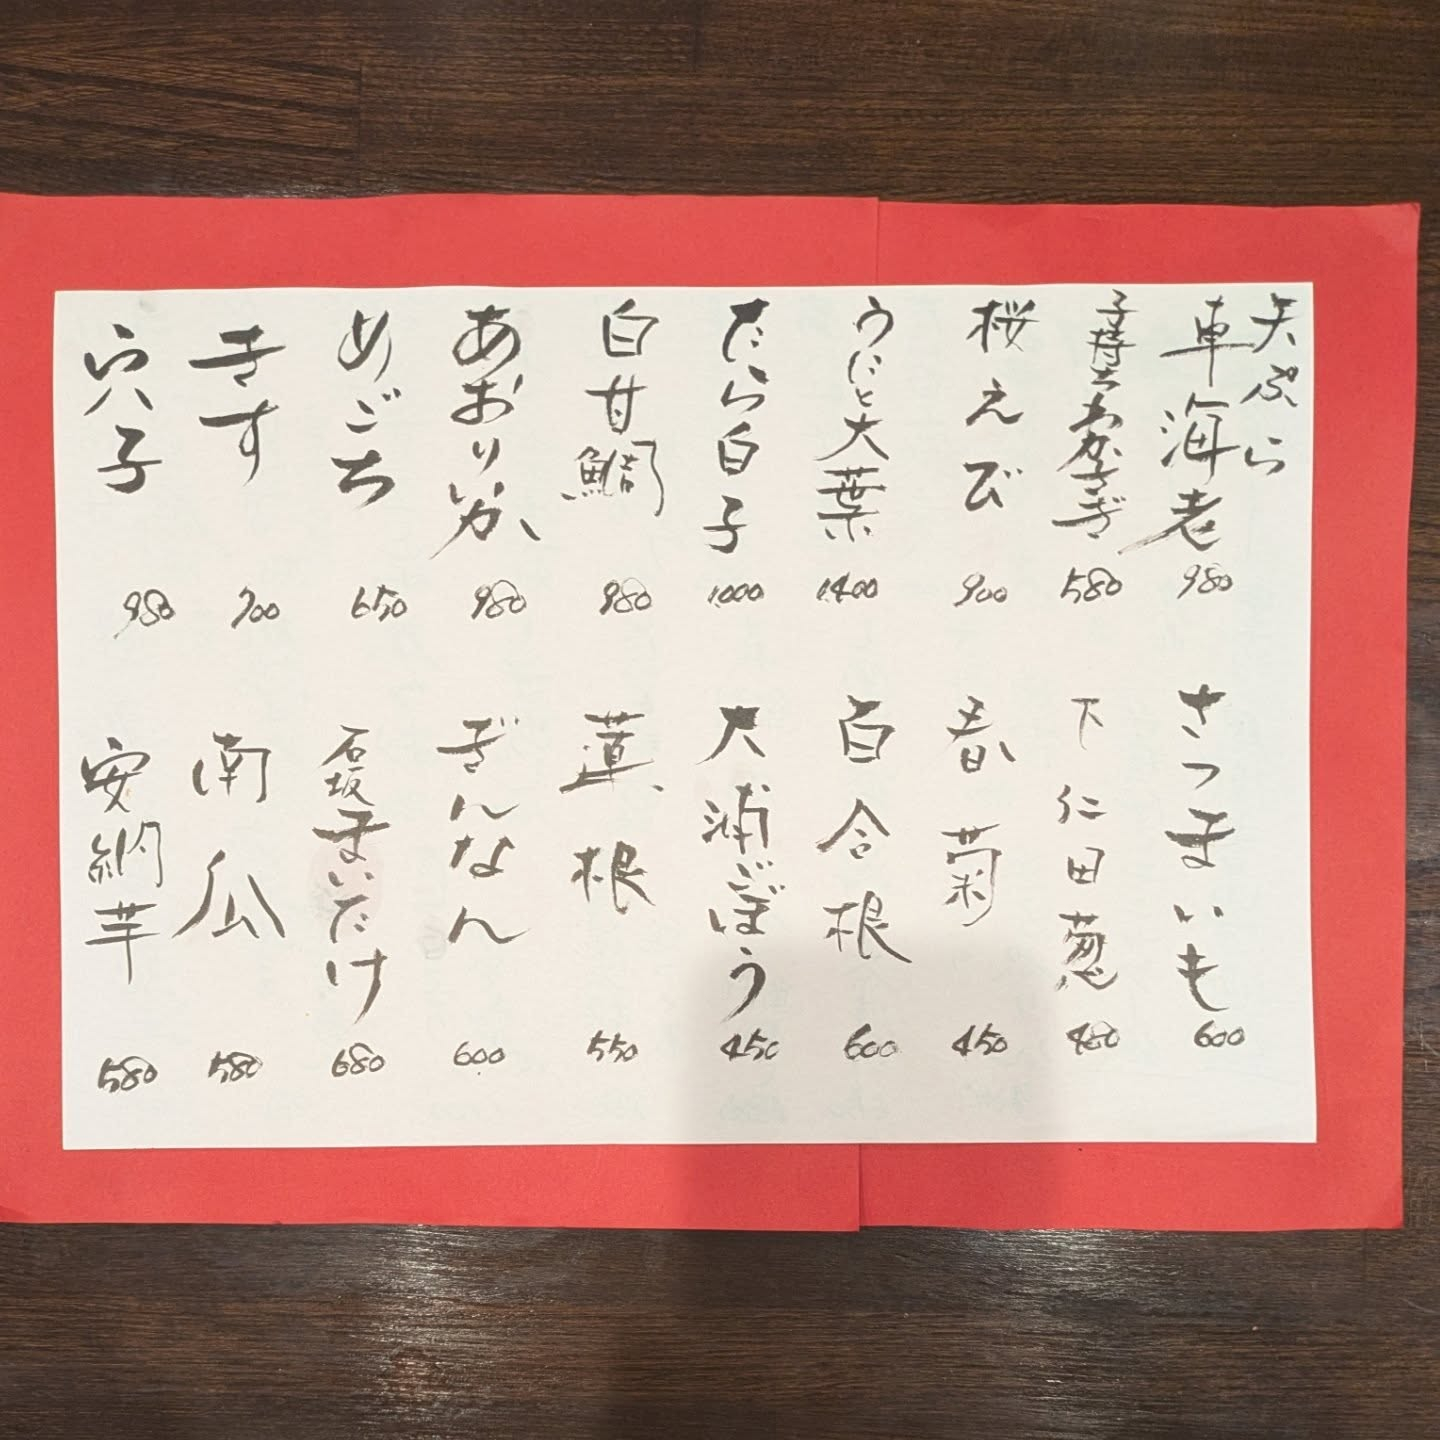 天ぷら
車海老 980
子持ちわかさぎ 580
桜えび 900
うにと大葉 1400
たら白子 1000
白甘鯛 980
あおりいか 980
めごち 650
きす 700
穴子 980
さつまいも 600
下仁田葱 480
春菊 450
百合根 600
大浦ごぼう 450
蓮根 550
ぎんなん 600
石坂まいたけ 680
南瓜 580
安納芋 580